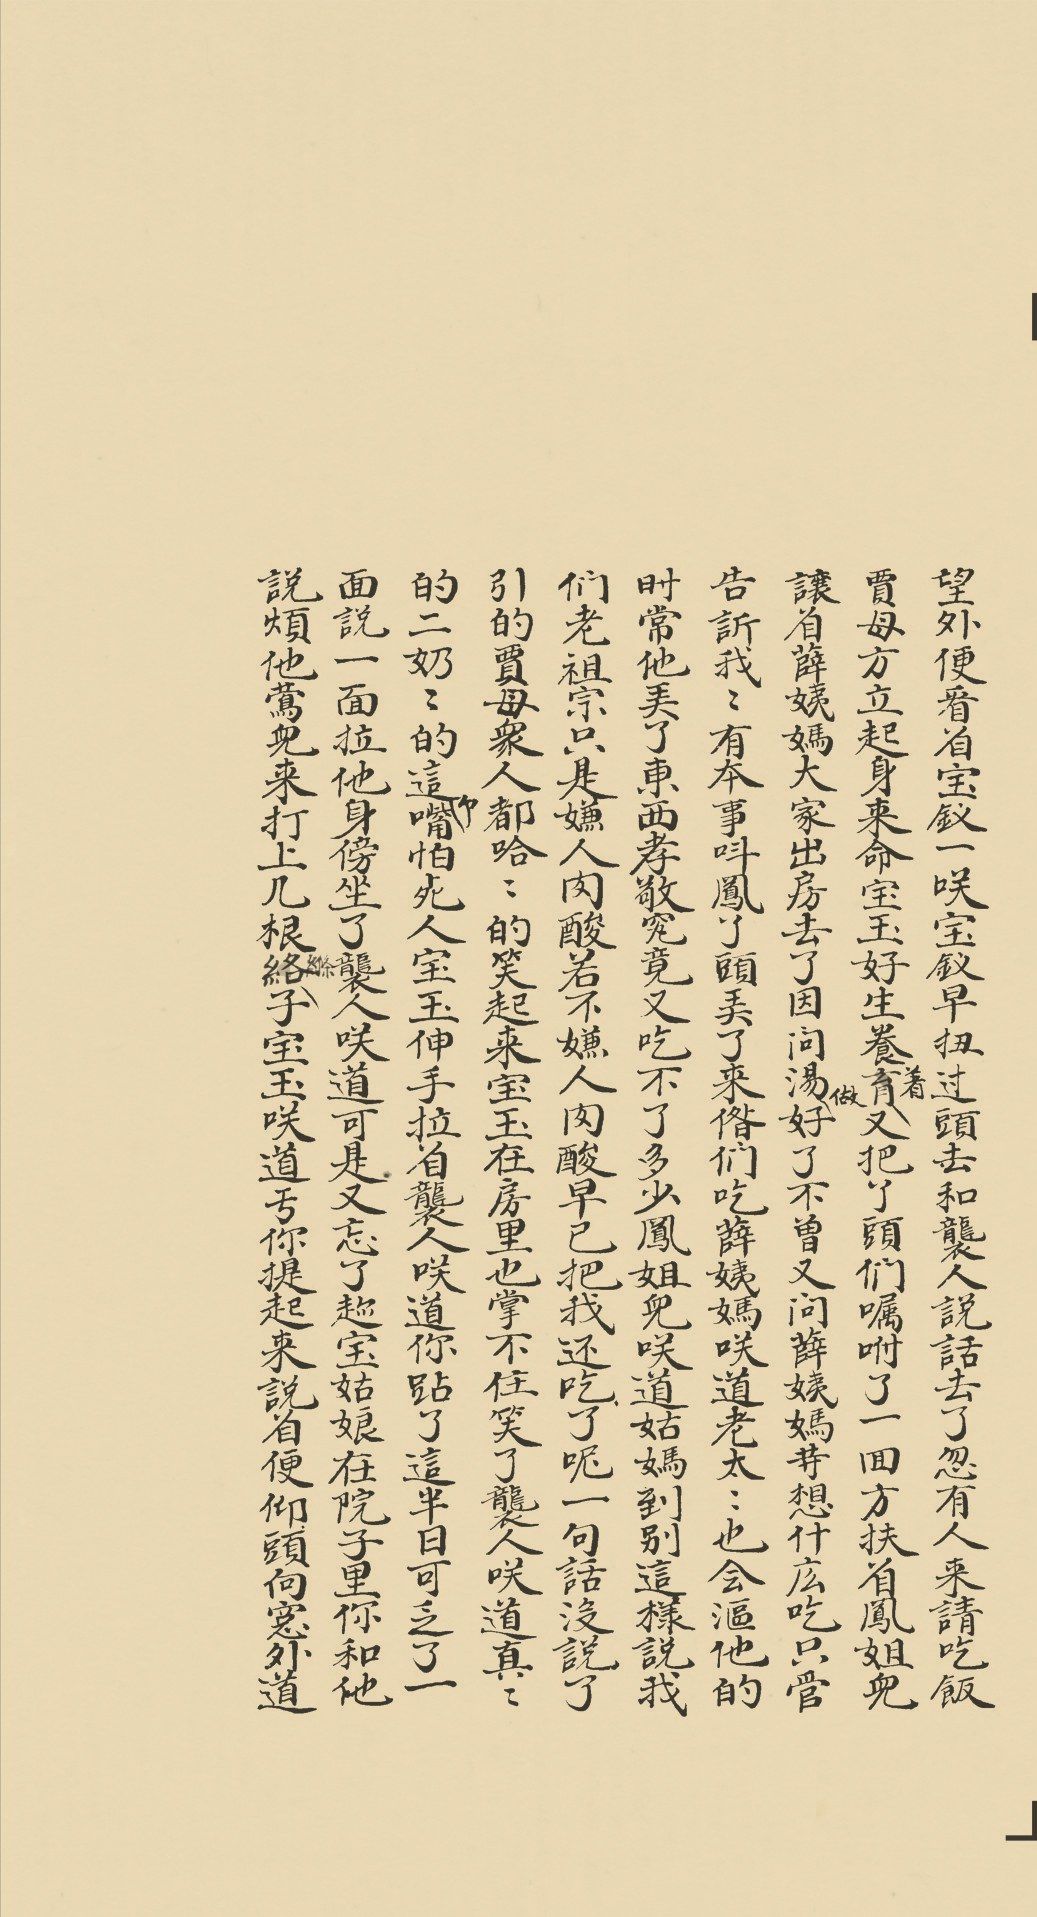 望外便看着宝釵一咲宝釵早扭过頭去和襲人説話去了忽有人来請吃飯
賈母方立起身来命宝玉好生養育着又把丫頭們嘱咐了一囬方扶着鳳姐兒
讓着薛姨媽大家出房去了因问湯做好了不曾又问薛姨媽䓁想什庅吃只管
告訴我〻有夲事叫鳳丫頭弄了来偺们吃薛姨媽咲道老太〻也会漚他的
时常他弄了東西孝敬究竟又吃不了多少鳳姐兒咲道姑媽到别這樣説我
们老祖宗只是嫌人肉酸若不嫌人肉酸早已把我还吃了呢一句話没説了
引的賈母衆人都哈〻的笑起来宝玉在房里也掌不住笑了襲人咲道真〻
的二奶〻的這嘴怕死人宝玉伸手拉着襲人咲道你跕了這半日可乏了一
面説一面拉他身傍坐了襲人咲道可是又忘了趂宝姑娘在院子里你和他
説煩他鶯兒来打上几根絡縧子宝玉咲道亏你提起来説着便仰頭向窓外道